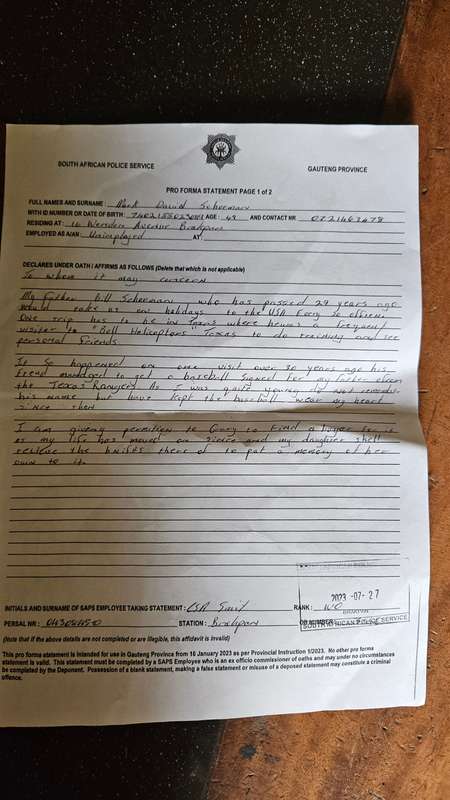 SOUTH AFRICAN POLICE SERVICE
GAUTENG PROVINCE
PRO FORMA STATEMENT PAGE 1 of 2
FULL NAMES AND SURNAME : Mark David Scherman
WITH ID NUMBER OR DATE OF BIRTH : AGE : 49 AND CONTACT NR
RESIDING AT : 16 Avenue Brakpan
EMPLOYED AS A/AN : Unimployed AT
DECLARES UNDER OATH / AFFIRMS AS FOLLOWS (Delete that which is not applicable)
To whom it may concern
My Father Bill Scherman who has passed 29 years ago
would take us on holidays to the USA
One trip has to be in Texas where he was a frequent
visiter to "Bell Helicopters" Texas to do training and see
personal friends
It so happened on one visit over 30 years ago his
friend managed to get a baseball signed for my father from
the Texas Rangers As I was quit young I do not remember
his name but have kept the baseball near my heart
since then
I am giveng permition to to find a buyer for it
as my life has moved on and my daughter shall
recieve the there of to put a memory of her
own to it.
2023 -07- 27
INITIALS AND SURNAME OF SAPS EMPLOYEE TAKING STATEMENT : Smit RANK : W/O
BRAKPAN
PERSAL NR : STATION : Brakpan
SOUTH AFRICAN POLICE SERVICE
(Note that if the above details are not completed or are illegible, this affidavit is invalid)
This pro forma statement is intended for use in Gauteng Province from 16 January 2023 as per Provincial Instruction 1/2023. No other pro forma
statement is valid. This statement must be completed by a SAPS Employee who is an ex officio commissioner of oaths and may under no circumstances
be completed by the Deponent. Possession of a blank statement, making a false statement or misuse of a deposed statement may constitute a criminal
offence.